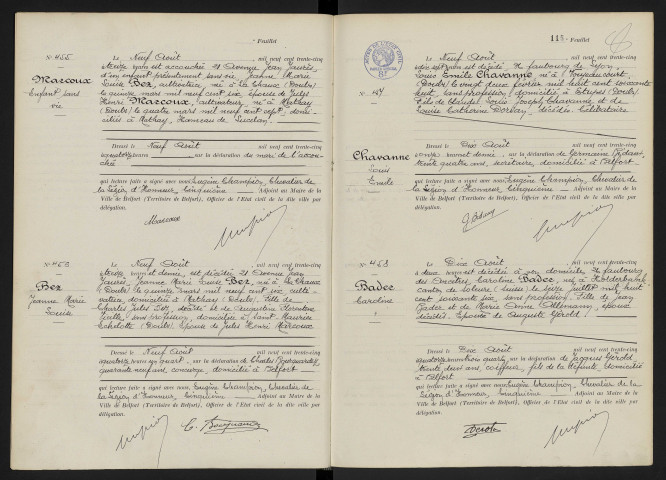 - Feuillet
N° 455
Marcoux
Enfant sans
vie
Le Neuf Août mil neuf cent trente-cinq
est accouchée 21 Avenue Jean Jaurès,
d'un enfant présentement sans vie, Jeanne Marie
Louise Bez, cultivatrice, née à La Chaux (Doubs)
le quinze mars mil neuf cent six, épouse de Jules
Henri Marcoux, cultivateur, né à Mathay
(Doubs), le quatre mars mil neuf cent sept, domi-
ciliés à Mathay, Hameau de Lucelan.
Dressé le Neuf Août mil neuf cent trente-cinq
quatorze heures sur la déclaration du mari de l'accou-
chée
qui lecture faite a signé avec nous, Eugène Champion, Chevalier de
la Légion d'Honneur, Cinquième Adjoint au Maire de la
Ville de Belfort (Territoire de Belfort), Officier de l'Etat civil de la dite ville par
délégation.
Marcoux
N° 456
Bez
Jeanne Marie
Louise
Le Neuf Août mil neuf cent trente-cinq
heures et demie, est décédée 21 Avenue Jean
Jaurès, Jeanne Marie Louise Bez, née à La Chaux
(Doubs) le quinze mars mil neuf cent six, culti-
vatrice, domiciliée à Mathay (Doubs). Fille de
Charles Jules Bez, décédé et de Augustine Florentine
sans profession, domiciliée à Saint Maurice
Echelotte (Doubs). Epouse de Jules Henri Marcoux
Dressé le Neuf Août mil neuf cent trente-cinq
quatorze heures un quart, sur la déclaration de Charles
quarante neuf ans, concierge, domicilié à Belfort
qui lecture faite a signé avec nous, Eugène Champion, Chevalier de
la Légion d'Honneur, Cinquième Adjoint au Maire de la
Ville de Belfort (Territoire de Belfort), Officier de l'Etat civil de la dite ville par
délégation.
115 - Feuillet
N° 457
Chavanne
Louis
Emile
Le Neuf Août mil neuf cent trente-cinq
est décédé, faubourg de Lyon,
Louis Emile Chavanne, né à Voujeaucourt
(Doubs) le vingt deux février mil huit cent soixante
huit, sans profession, domicilié à Etupes (Doubs)
Fils de Claude Louis Joseph Chavanne, et de
Louise Catherine, décédés. Célibataire
Dressé le Dix Août mil neuf cent trente-cinq
onze heures et demie, sur la déclaration de Germaine
trente quatre ans, secrétaire, domiciliée à Belfort
qui lecture faite a signé avec nous, Eugène Champion, Chevalier de
la Légion d'Honneur, Cinquième Adjoint au Maire de la
Ville de Belfort (Territoire de Belfort), Officier de l'Etat civil de la dite ville par
délégation.
N° 458
Badec
Caroline
Le Dix Août mil neuf cent trente-cinq
à deux heures est décédée à son domicile, faubourg
des Ancêtres, Caroline Badec, née à Holderbank,
canton de Soleure (Suisse) le juillet mil huit
cent soixante six, sans profession. Fille de Jean
Badec et de Marie Anne Allemann, époux
décédés. Epouse de Auguste Gérold.
Dressé le Dix Août mil neuf cent trente-cinq
heures un quart, sur la déclaration de Jacques Gérold,
trente deux ans, coiffeur, fils de la défunte, domicilié
à Belfort
qui lecture faite a signé avec nous, Eugène Champion, Chevalier de la
Légion d'Honneur, Cinquième Adjoint au Maire de la
Ville de Belfort (Territoire de Belfort), Officier de l'Etat civil de la dite ville par
délégation.